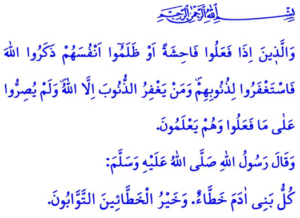 بِسْمِ اللّٰهِ الرَّحْمٰنِ الرَّحِيمِ
وَالَّذ۪ينَ اِذَا فَعَلُوا فَاحِشَةً اَوْ ظَلَمُٓوا اَنْفُسَهُمْ ذَكَرُوا اللّٰهَ
فَاسْتَغْفَرُوا لِذُنُوبِهِمْۖ وَمَنْ يَغْفِرُ الذُّنُوبَ اِلَّا اللّٰهُۖ وَلَمْ يُصِرُّوا
عَلٰى مَا فَعَلُوا وَهُمْ يَعْلَمُونَ.
وَقَالَ رَسُولُ اللّٰهِ صَلَّى اللّٰهُ عَلَيْهِ وَسَلَّمَ:
كُلُّ بَنِى اٰدَمَ خَطَّاءٌ. وَخَيْرُ الْخَطَّائِينَ التَّوَّابُونَ.